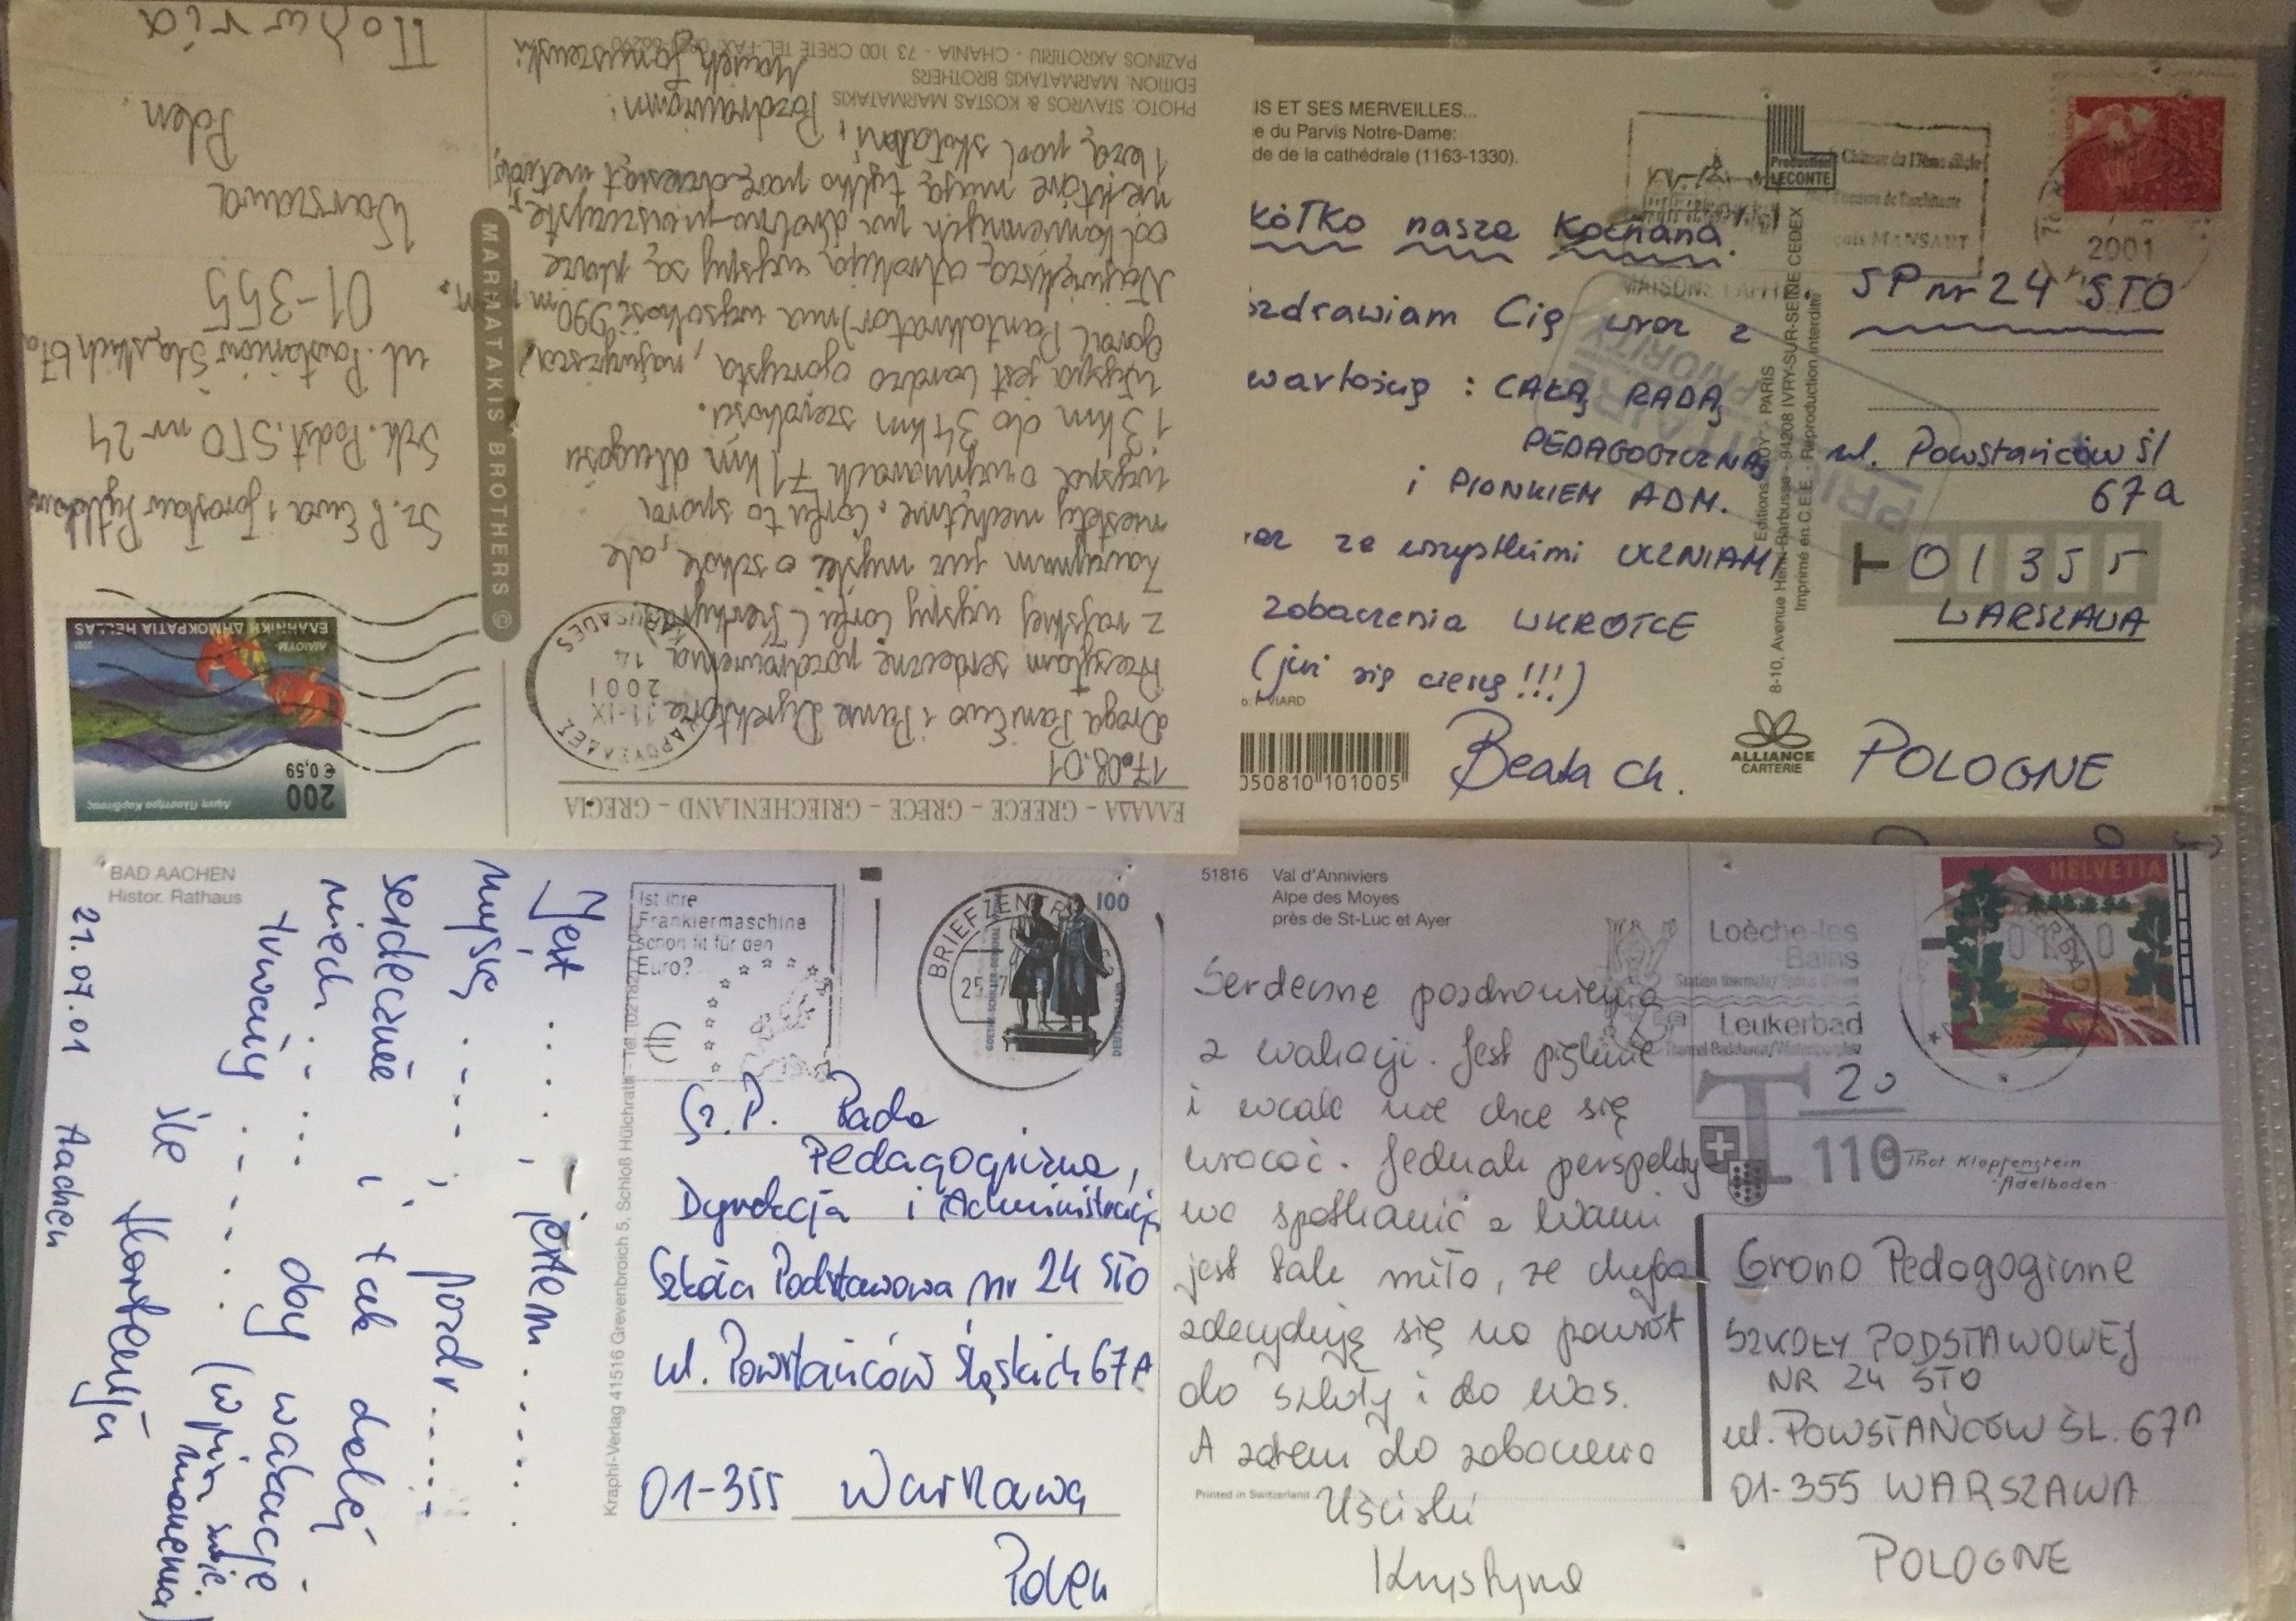 ΕΛΛΑΔΑ – GREECE – GRECE – GRIECHENLAND – GRECIA
17.08.01
Droga Pani Ewo i Panie Dyrektorze
Przesyłam serdeczne pozdrowienia
z rajskiej wyspy Corfu (Kerkyra).
Zaczynam już myśleć o szkole, ale
niestety niechętnie. Corfu to spora
wyspa o wymiarach 71 km długości
13 km do 34 km szerokości.
Wyspa jest bardzo górzysta, najwyższa
góra (Pantokrator) ma wysokość 990 m n.
Największą atrakcją wyspy są plaże
od kamiennych po drobno-piaszczyste,
niektóre mają tylko parę dziesiąt metrów,
leżą pod skałami.
Pozdrawiam!
Marek
PHOTO: STAVROS & KOSTAS MARMATAKIS
EDITION: MARMATAKIS BROTHERS
PAZINOS AKROTIRIU - CHANIA - 73 100 CRETE TEL. FAX.
MARMATAKIS BROTHERS ©
ΚΑΡΟΥΣΑΔΕΣ
11-IX
2001
14
KARUSADES
200
€ 0,59
ΕΛΛΗΝΙΚΗ ΔΗΜΟΚΡΑΤΙΑ HELLAS
Sz. P. Ewa i Jarosław
Szk. Podst. STO nr 24
ul. Powstańców Śląskich 67a
01-355
Warszawa
Polen.
IS ET SES MERVEILLES...
e du Parvis Notre-Dame:
de de la cathédrale (1163-1330).
KÓŁKO nasze Kochana.
zdrawiam Cię wraz z
wartością : CAŁĄ RADĄ
PEDAGOGICZNĄ
i PIONKIEM ADM.
raz ze wszystkimi UCZNIAMI
zobaczenia WKRÓTCE
(już się cieszę!!!)
Beata Ch.
VIARD
050810 101005
Production
LECONTE
Château du 17ème siècle
MANSART
MAISONS LAFFITTE
PRIORITAIRE
PRIORITY
2001
Editions "GUY" - PARIS
8-10, Avenue Henri Barbusse - 94208 IVRY-SUR-SEINE CEDEX
Imprimé en C.E.E. Reproduction interdite
ALLIANCE
CARTERIE
SP nr 24 STO
ul. Powstańców Śl
67a
T 01355
WARSZAWA
POLOGNE
BAD AACHEN
Histor. Rathaus
Jest .... , jestem .....
myślę .... , pozdr.....
serdecznie i tak dalej
niech ..... oby wakacje
trwały ..... (wpisz swoje marzenia)
śle
21.07.01 Aachen
Kraphi-Verlag 41516 Grevenbroich 5, Schloß Hülchrath - Tel.
Ist Ihre
Frankiermaschine
schon fit für den
Euro?
BRIEFZENTRUM
100
DEUTSCHLAND
Sz.P. Rada
Pedagogiczna,
Dyrekcja i Administracja
Szkoła Podstawowa nr 24 STO
ul. Powstańców Śląskich 67A
01-355 Warszawa
Polen
51816 Val d'Anniviers
Alpe des Moyes
près de St-Luc et Ayer
Serdeczne pozdrowienia
z wakacji. Jest pięknie
i wcale nie chce się
wracać. Jednak perspekty
wa spotkania z Wami
jest tak miła, że chyba
zdecyduję się na powrót
do szkoły i do Was.
A zatem do zobaczenia
Uściski
Krystyna
Printed in Switzerland
Loèche-les
Bains
Leukerbad
HELVETIA
20
T
110
Thot. Klopfenstein
Adelboden
Grono Pedagogiczne
SZKOŁY PODSTAWOWEJ
NR 24 STO
ul. POWSTAŃCÓW ŚL. 67A
01-355 WARSZAWA
POLOGNE